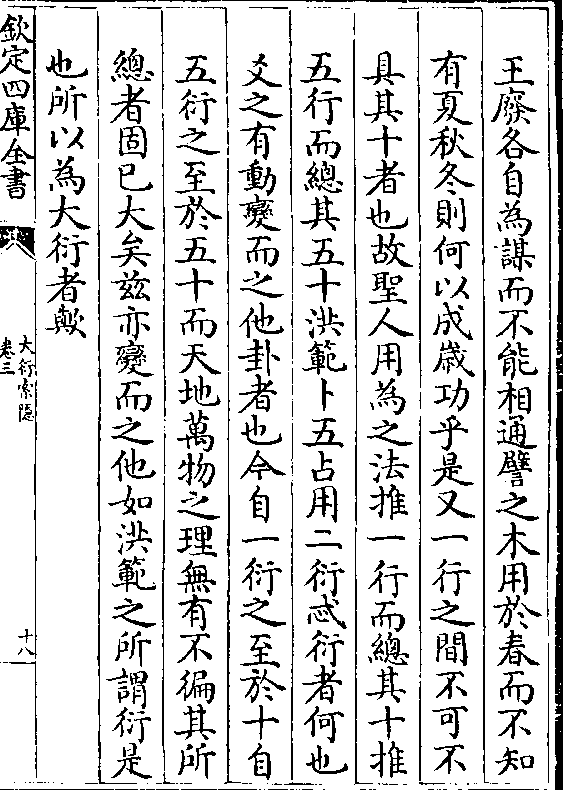 王廢各自為謀而不能相通譬之木用於春而不知
有夏秋冬則何以成歲功乎是又一行之間不可不
具其十者也故聖人用為之法推一行而總其十推
五行而總其五十洪範卜五占用二衍忒衍者何也
爻之有動變而之他卦者也今自一衍之至於十自
五衍之至於五十而天地萬物之理無有不徧其所
總者固已大矣兹亦變而之他如洪範之所謂衍是
也所以為大衍者歟
欽定四庫全書
大衍索隱
卷三
十八